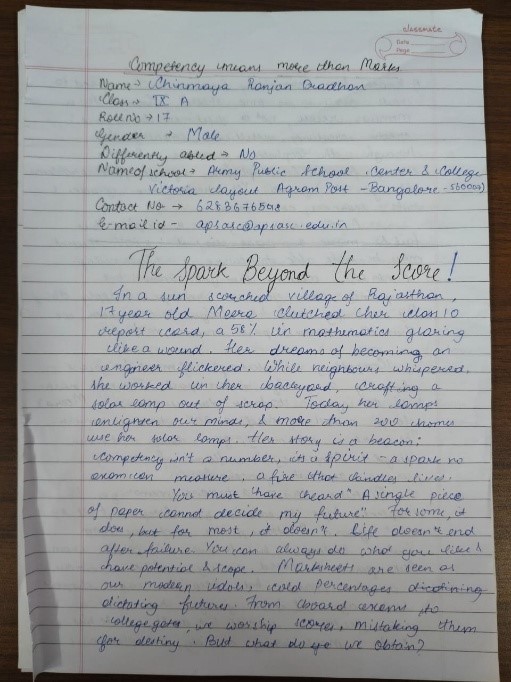 classmate
Date
Page
Competency means more than Marks
Name → Chinmaya Ranjan Pradhan
Class → IX A
Roll No → 17
Gender → Male
Differently abled → No
Name of school → Army Public School, Center & College
Victoria layout Agram Post - Bangalore - 560007)
Contact No →
E-mail id - apsasc@apsasc.edu.in
The Spark Beyond the Score!
In a sun scorched village of Rajasthan,
17 year old Meera clutched her class 10
report card, a 58% in mathematics glaring
like a wound. Her dreams of becoming an
engineer flickered. While neighbours whispered,
she worked in her backyard, crafting a
solar lamp out of scrap. Today her lamps
enlighten our minds, & more than 200 homes
use her solar lamps. Her story is a beacon:
competency isn't a number, its a spirit - a spark no
exam can measure, a fire that kindles lives.
You must have heard "A single piece
of paper cannot decide my future". For some, it
does, but for most, it doesn't. Life doesn't end
after failure. You can always do what you like &
have potential & scope. Marksheets are seen as
our modern idols, cold percentages
dictating futures. From board exams, to
college gates, we worship scores, mistaking them
for destiny. But what do we obtain?